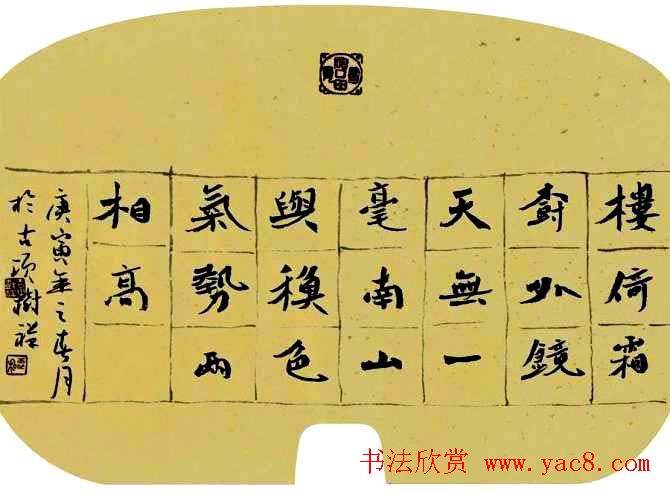 樓倚霜
尌外鏡
天無一
毫南山
與秋色
氣勢兩
相高
庚寅年之春月
於古項樹祥
书法欣赏 www.yac8.com